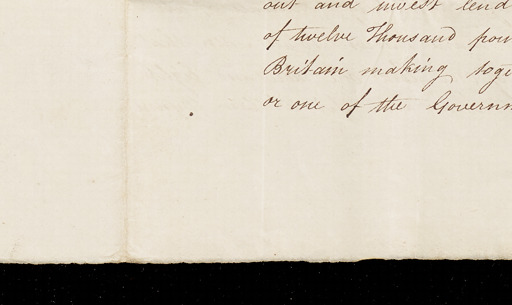 out and invest lend
of twelve Thousand poun
Britain making toge
or one of the Governm